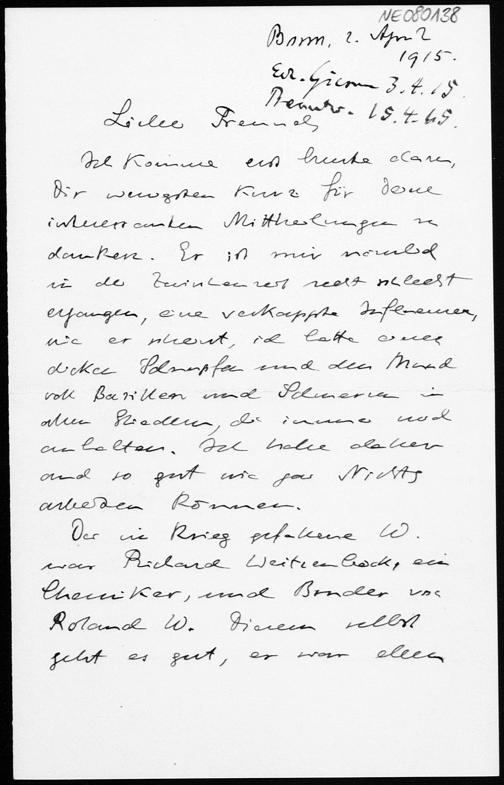 NE080138
Bonn, 2. April
1915.
3.4.15
15.4.65.
Lieber Freund,
Ich komme erst heute dazu,
Dir wenigsten kurz für Deine
interessanten Mittheilungen zu
danken. Es ist mir nämlich
in der Zwischenzeit recht schlecht
ergangen, eine verkappte Influenza,
wie es scheint, ich hatte einen
dicken Schnupfen und den Mund
voll Bazillen und Schmerzen in
allen Gliedern, die immer noch
anhalten. Ich habe daher
auch so gut wie gar Nichts
arbeiten können.
Der im Krieg gefallene W.
war Richard Weitzenböck, ein
Chemiker, und Bruder von
Roland W. Diesem selbst
geht es gut, er war eben